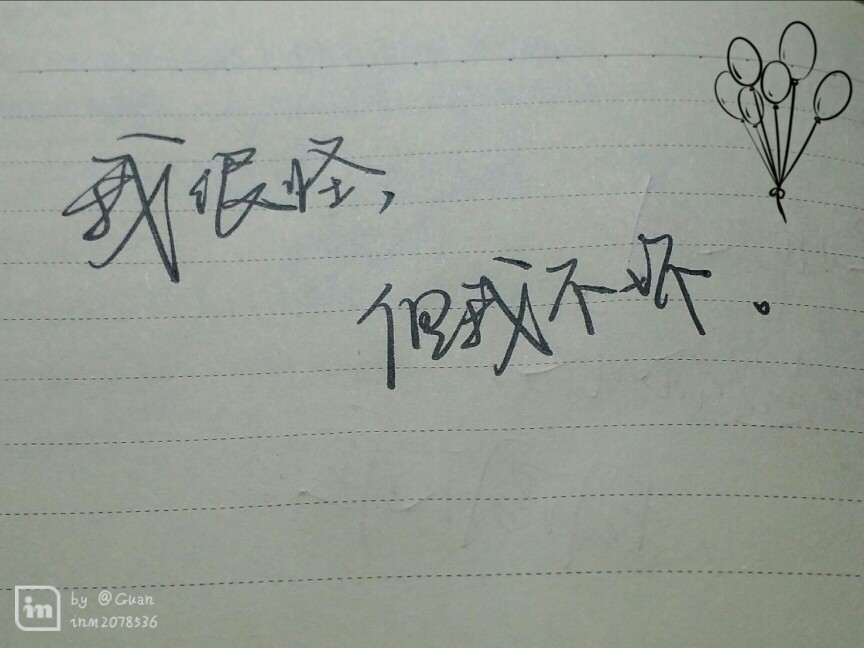 我很怪，
但我不坏。
in by @Guan
inm2078536